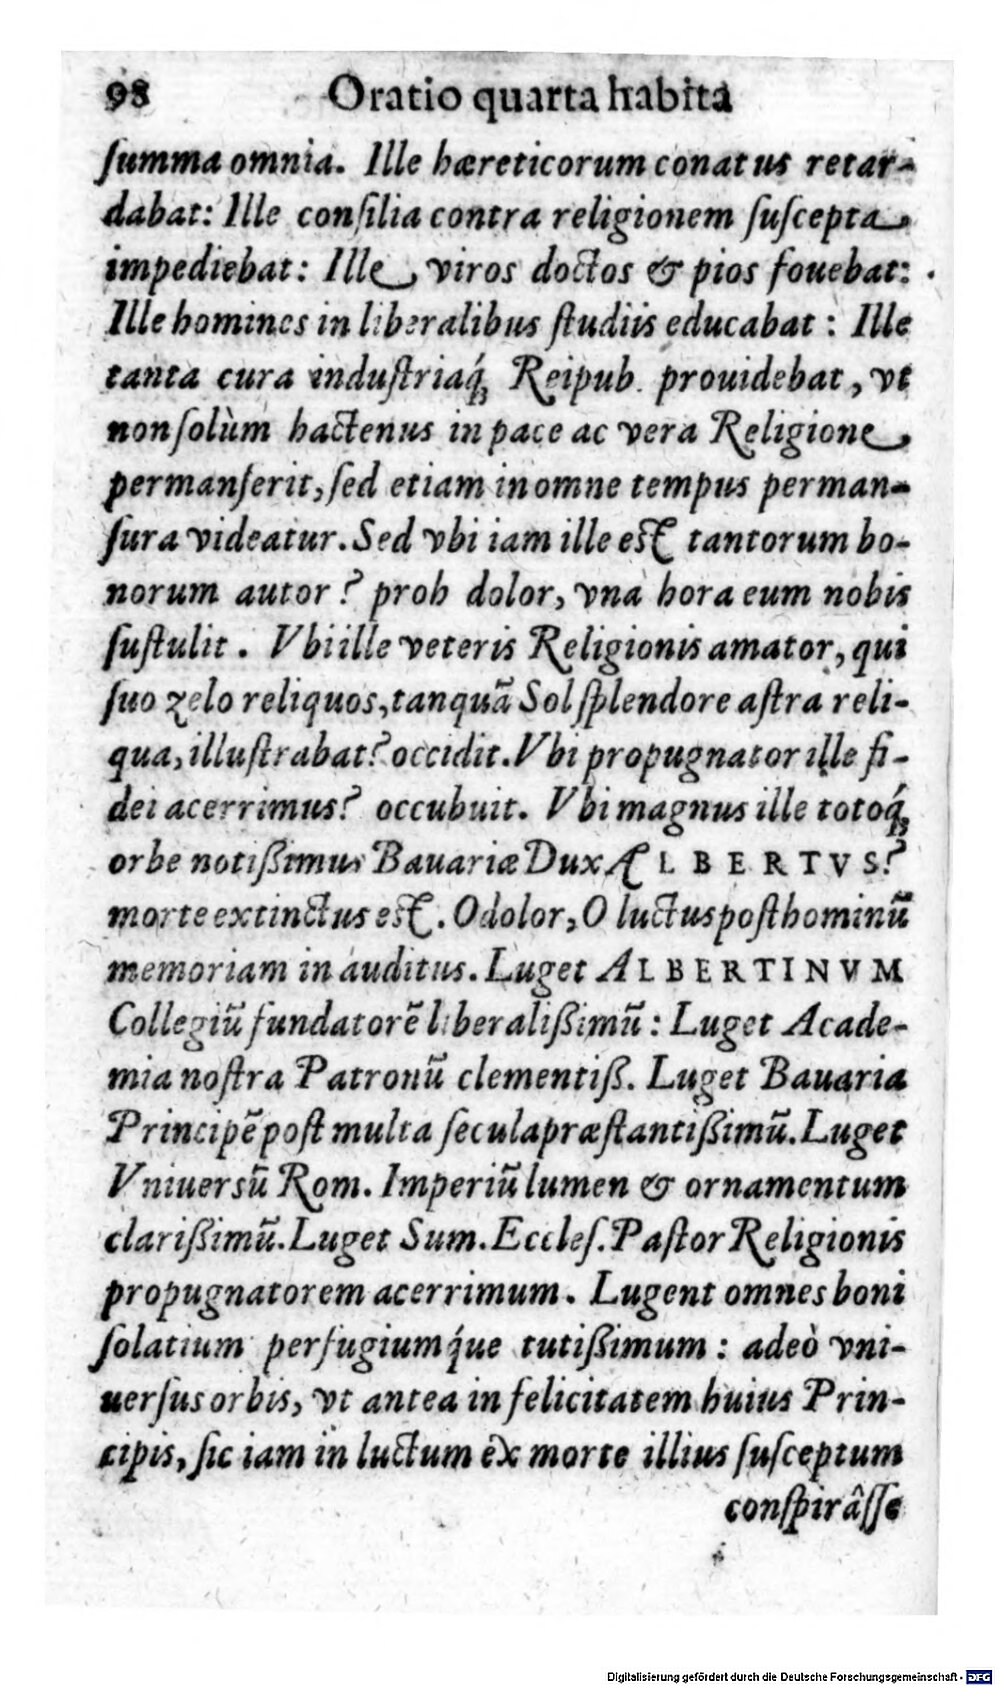 98 Oratio quarta habita
ſumma omnia. Ille hæreticorum conatus retar-
dabat: Ille conſilia contra religionem ſuſcepta
impediebat: Ille viros doctos & pios fouebat:
Ille homines in liberalibus ſtudiis educabat: Ille
tanta cura induſtriaq́; Reipub. prouidebat, vt
non ſolùm hactenus in pace ac vera Religione
permanſerit, ſed etiam in omne tempus perman-
ſura videatur. Sed vbi iam ille est tantorum bo-
norum autor? proh dolor, vna hora eum nobis
ſuſtulit. Vbi ille veteris Religionis amator, qui
ſuo zelo reliquos, tanquã Sol ſplendore aſtra reli-
qua, illuſtrabat? occidit. Vbi propugnator ille fi-
dei acerrimus? occubuit. Vbi magnus ille totoq́;
orbe notißimus Bauariæ Dux ALBERTVS?
morte extinctus est. O dolor, O luctus poſt hominũ
memoriam in auditus. Luget ALBERTINVM
Collegiũ fundatorẽ liberalißimũ: Luget Acade-
mia noſtra Patronũ clementiß. Luget Bauaria
Principẽ poſt multa ſecula præſtantißimũ. Luget
Vniuersũ Rom. Imperiũ lumen & ornamentum
clarißimũ. Luget Sum. Eccleſ. Paſtor Religionis
propugnatorem acerrimum. Lugent omnes boni
ſolatium perfugiumq́ue tutißimum: adeò vni-
uerſus orbis, vt antea in felicitatem huius Prin-
cipis, ſic iam in luctum ex morte illius ſuſceptum
conſpirâſſe
Digitalisierung gefördert durch die Deutsche Forschungsgemeinschaft - DFG